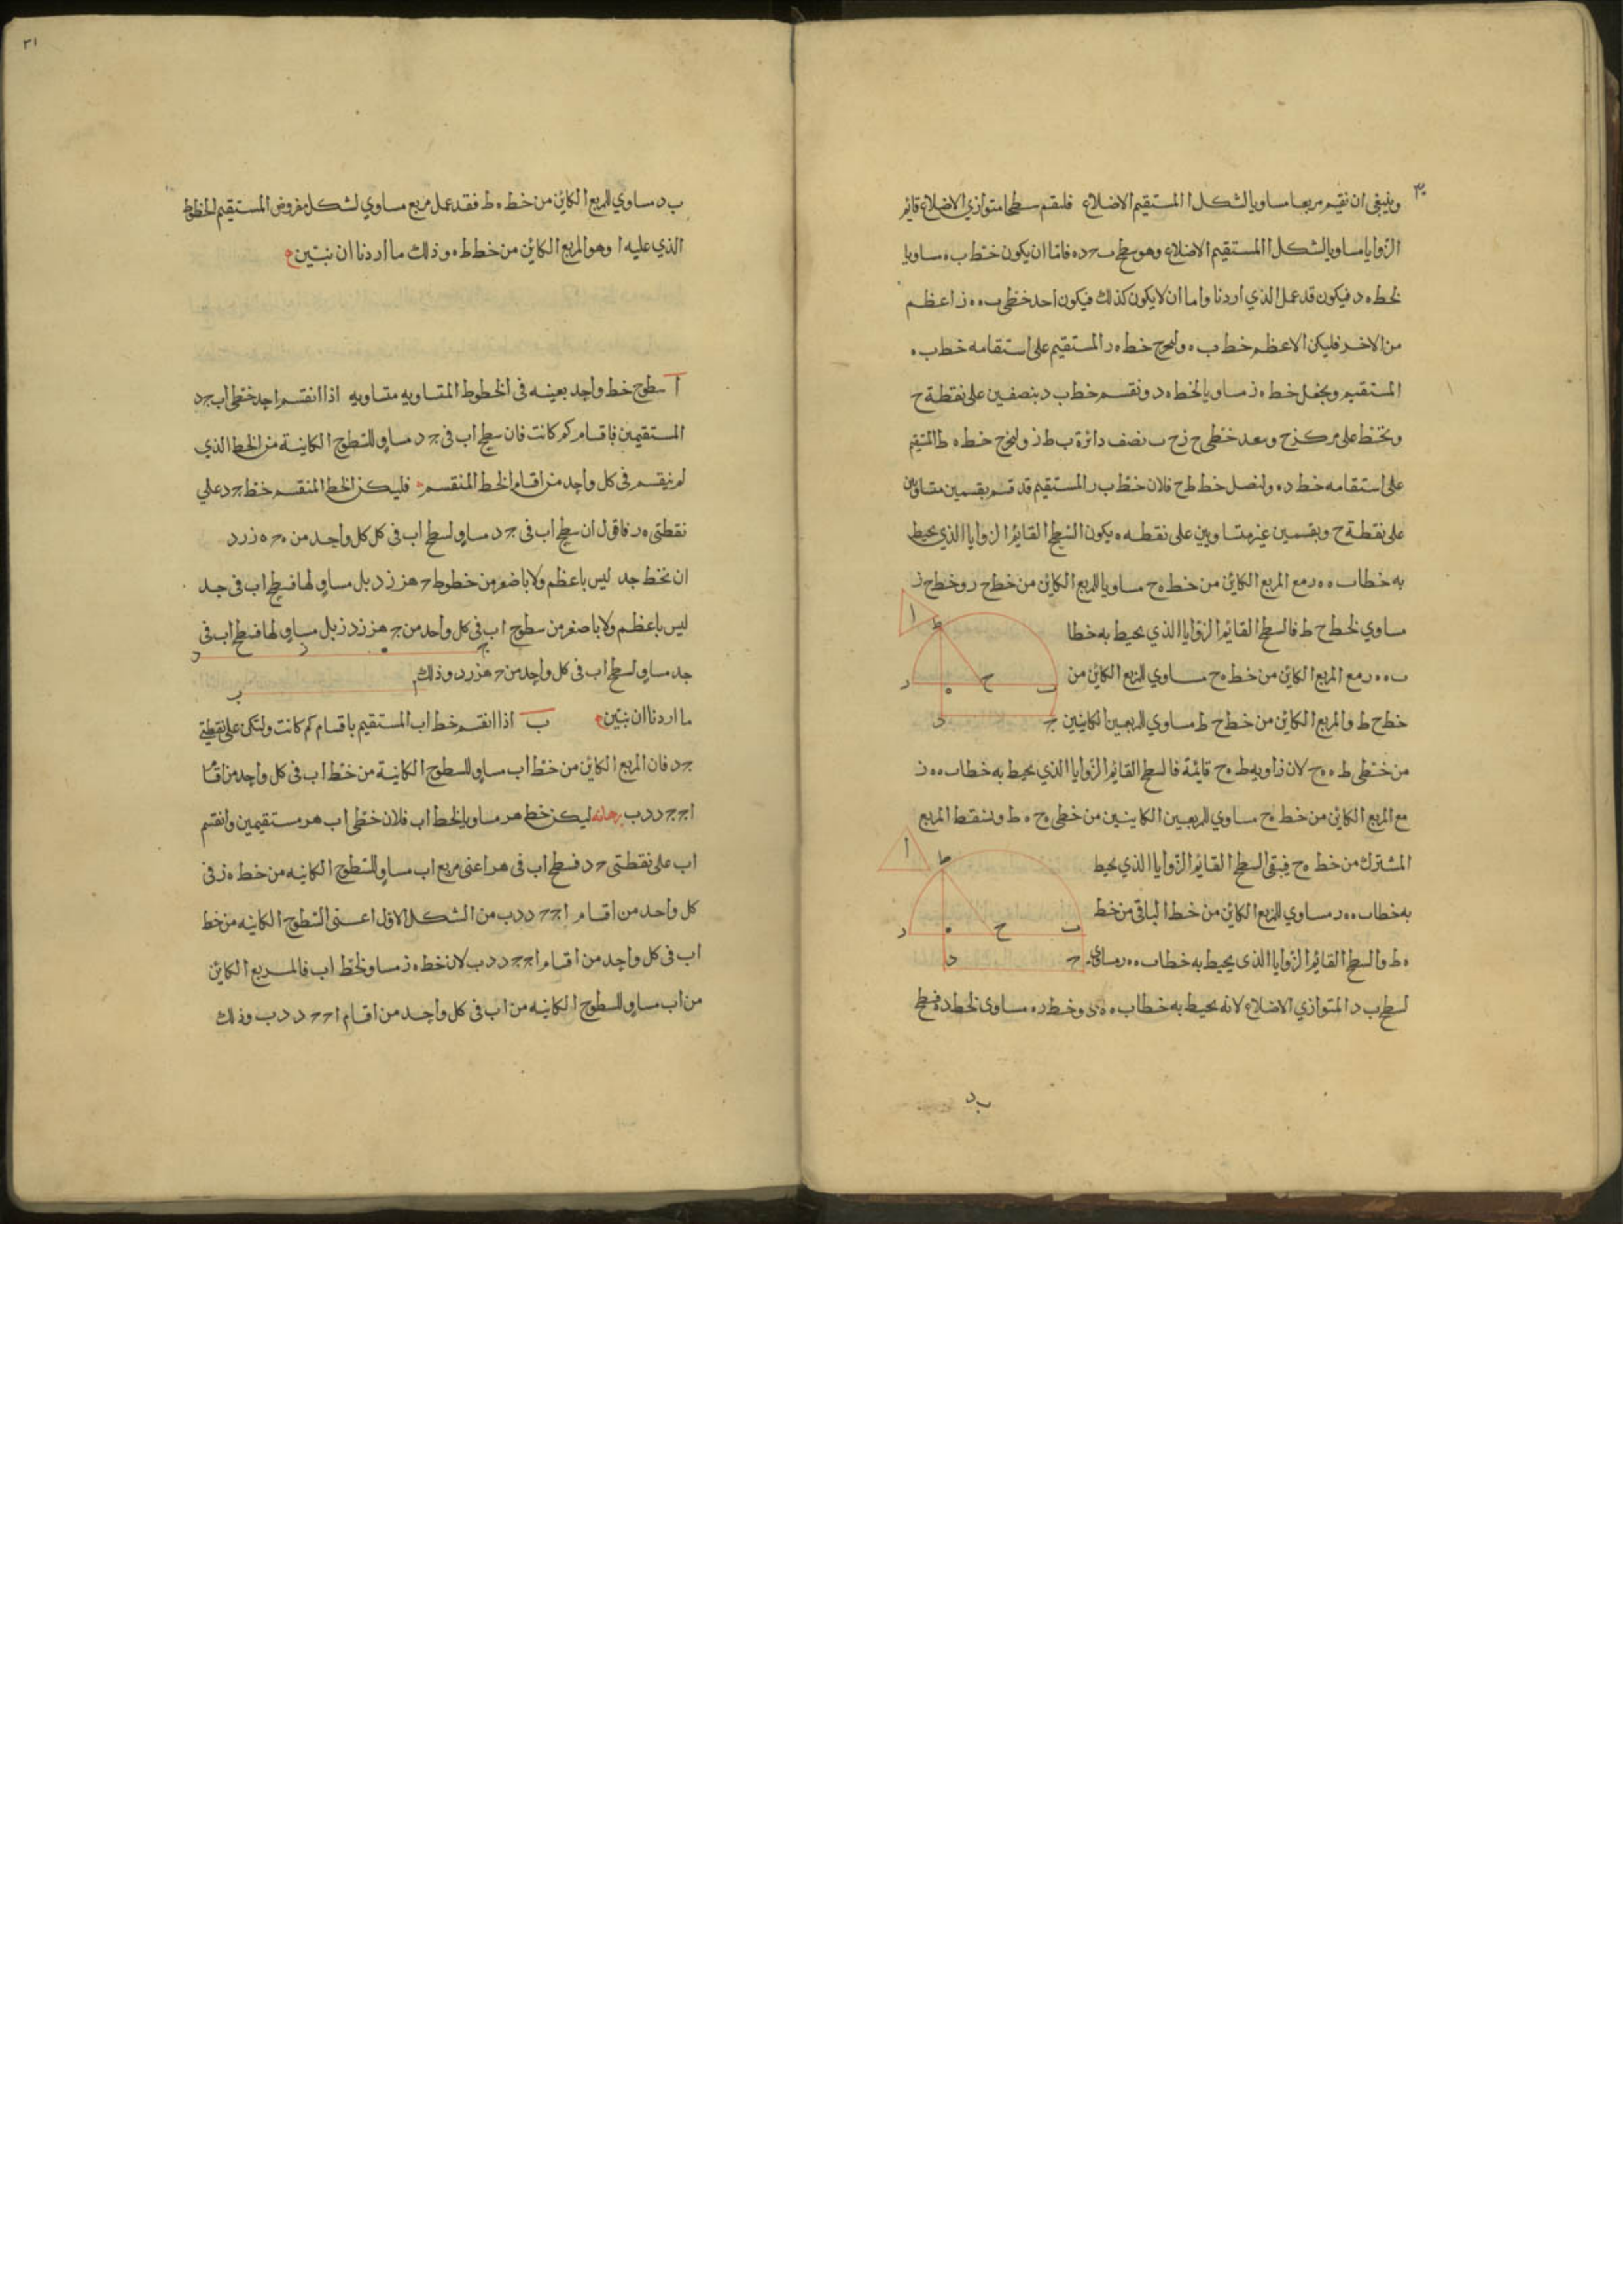 وينبغى ان نقيم مربعا مساويا لشكل ا المستقيم الاضلاع فلنقم سطحا متوازي الاضلاع قايم
الزوايا مساويا لشكل ا المستقيم الاضلاع وهو سطح ب ح د ه فاما ان يكون خط ب ه مساويا
لخط ه د فيكون قد عمل الذي اردنا واما ان لا يكون كذلك فيكون احد خطى ب ه ه ز اعظم
من الاخر فليكن الاعظم خط ب ه وليخرج خط ه ر المستقيم على استقامه خط ب ه
المستقيم ويجعل خط ه ز مساويا لخط ه د ونقسم خط ب د بنصفين على نقطة ح
ونخط على مركز ح وبعد خطى ح ز ح ب نصف دائرة ب ط ز وليخرج خط ه ط المستقيم
على استقامه خط د ه ولنصل خط ط ح فلان خط ب ر المستقيم قد قسم بقسمين متساويين
على نقطة ح وبقسمين غير متساويين على نقطه ه يكون السطح القايم الزوايا الذي يحيط
به خطا ب ه ه ر مع المربع الكاين من خط ه ح مساويا للمربع الكاين من خط ح ر وخط ح ز
مساوي لخط ح ط فالسطح القايم الزوايا الذي يحيط به خطا
ا
ط
ب ه ه ر مع المربع الكاين من خط ه ح مساوي للمربع الكاين من
ر ه ح ب
خط ح ط والمربع الكاين من خط ح ط مساوي للمربعين الكاينين
د ج
من خطى ط ه ه ح لان زاويه ط ه ح قايمة فالسطح القايم الزوايا الذي يحيط به خطا ب ه ه ز
مع المربع الكاين من خط ه ح مساوي للمربعين الكاينين من خطى ه ح ه ط ونسقط المربع
المشترك من خط ه ح فيبقى السطح القايم الزوايا الذي يحيط
ا
ط
به خطا ب ه ه ر مساوي للمربع الكاين من خط الباقى من خط
ر ه ح ب
ه ط والسطح القايم الزوايا الذى يحيط به خطا ب ه ه ر مساوي
د ح
لسطح ب د المتوازي الاضلاع لانه يحيط به خطا ب ه ه ى وخط ر ه مساوى لخط د ه فسطح
ب د
٣١
ب د مساوي للمربع الكاين من خط ه ط فقد عمل مربع مساوي لشكل مفروض المستقيم الخطوط
الذي عليه ا وهو المربع الكاين من خط ط ه وذلك ما اردنا ان نبين
ا سطوح خط واحد بعينه فى الخطوط المتساويه متساويه اذا انقسم احد خطى اب ج د
المستقيمين باقسام كم كانت فان سطح اب فى ج د مساو للسطوح الكاينة من الخط الذي
لم ينقسم فى كل واحد من اقسام الخط المنقسم فليكن الخط المنقسم خط ج د على
نقطتى ه ر فاقول ان سطح اب فى ج د مساو لسطح اب فى كل كل واحد من ح ه ه ز ر د
ان نخط جد ليس باعظم ولا باصغر من خطوط ح ه هز ز د بل مساو لها فسطح اب فى جد
ليس باعظم ولا باصغر من سطوح اب فى كل واحد من ج ه هز زد ز بل مساو لها فسطح اب فى
د ر ه ج
جد مساو لسطح اب فى كل واحد من ح ه هز رد وذلك
ب
ما اردنا ان نبين ب اذا انقسم خط اب المستقيم باقسام كم كانت ولتكن على نقطتي
ج د فان المربع الكاين من خط اب مساو للسطوح الكاينة من خط اب فى كل واحد من اقسام
اج ج د د ب برهانه ليكن خط هر مساويا لخط اب فلان خطى اب هر مستقيمين وانقسم
اب على نقطتى ح د فسطح اب فى هر اعنى مربع اب مساو للسطوح الكاينه من خط ه ز فى
كل واحد من اقسام اج ح د د ب من الشكل الاول اعنى السطوح الكاينه من خط
اب فى كل واحد من اقسام اج ج د د ب لان خط ه ز مساو لخط اب فالمربع الكاين
من اب مساو للسطوح الكاينه من اب فى كل واحد من اقسام اح ح د د ب وذلك